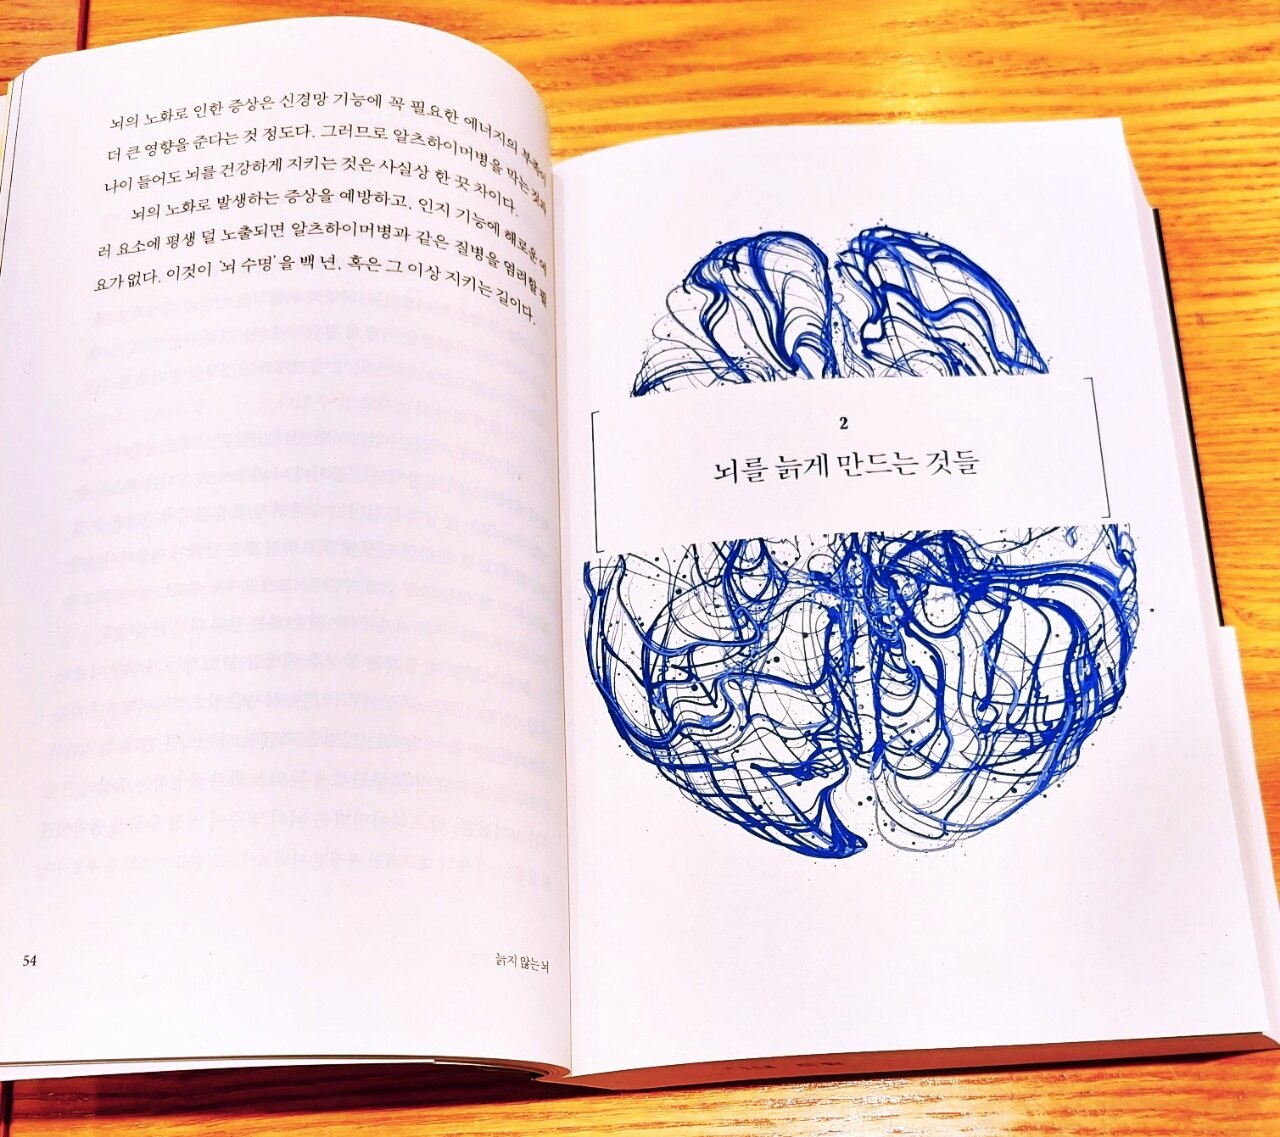 뇌의 노화로 인한 증상은 신경망 기능에 꼭 필요한 에너지의 부족이
더 큰 영향을 준다는 것 정도다. 그러므로 알츠하이머병을 막는 것과
나이 들어도 뇌를 건강하게 지키는 것은 사실상 한 끗 차이다.
뇌의 노화로 발생하는 증상을 예방하고, 인지 기능에 해로운 여
러 요소에 평생 덜 노출되면 알츠하이머병과 같은 질병을 염려할 필
요가 없다. 이것이 '뇌 수명'을 백 년, 혹은 그 이상 지키는 길이다.
54
늙지 않는 뇌
2
뇌를 늙게 만드는 것들